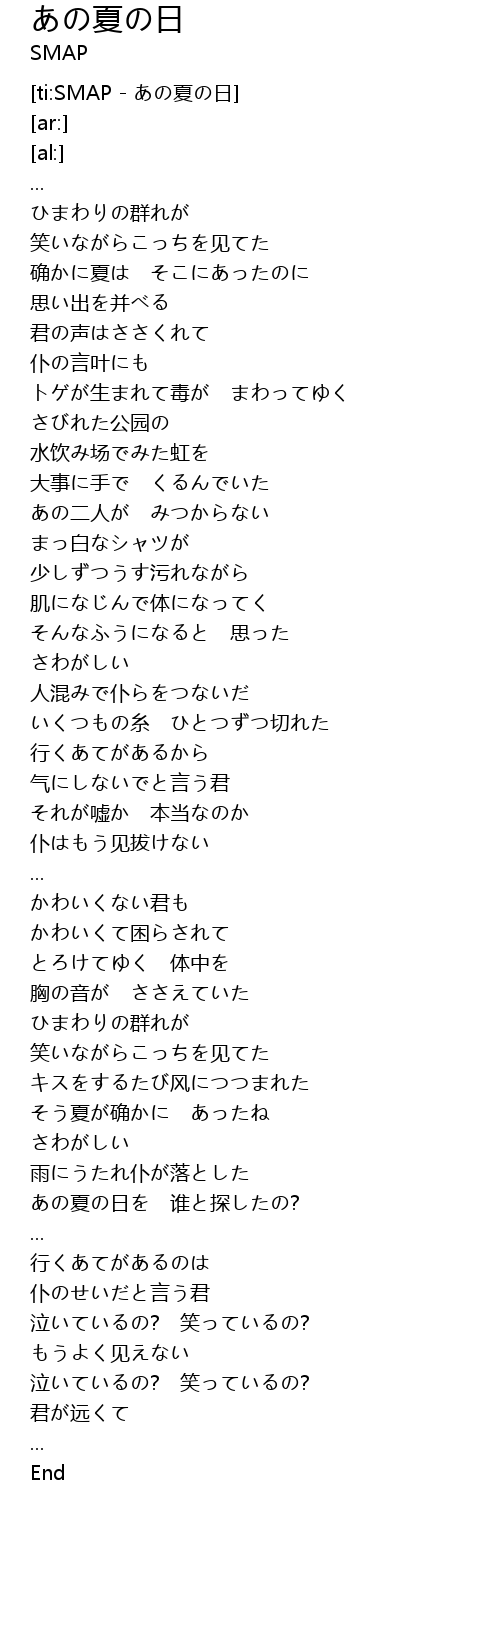 あの夏の日
SMAP
[ti:SMAP - あの夏の日]
[ar:]
[al:]
...
ひまわりの群れが
笑いながらこっちを见てた
确かに夏は　そこにあったのに
思い出を并べる
君の声はささくれて
仆の言叶にも
トゲが生まれて毒が　まわってゆく
さびれた公园の
水饮み场でみた虹を
大事に手で　くるんでいた
あの二人が　みつからない
まっ白なシャツが
少しずつうす污れながら
肌になじんで体になってく
そんなふうになると　思った
さわがしい
人混みで仆らをつないだ
いくつもの糸　ひとつずつ切れた
行くあてがあるから
气にしないでと言う君
それが嘘か　本当なのか
仆はもう见拔けない
...
かわいくない君も
かわいくて困らされて
とろけてゆく　体中を
胸の音が　ささえていた
ひまわりの群れが
笑いながらこっちを见てた
キスをするたび风につつまれた
そう夏が确かに　あったね
さわがしい
雨にうたれ仆が落とした
あの夏の日を　谁と探したの?
...
行くあてがあるのは
仆のせいだと言う君
泣いているの?　笑っているの?
もうよく见えない
泣いているの?　笑っているの?
君が远くて
...
End